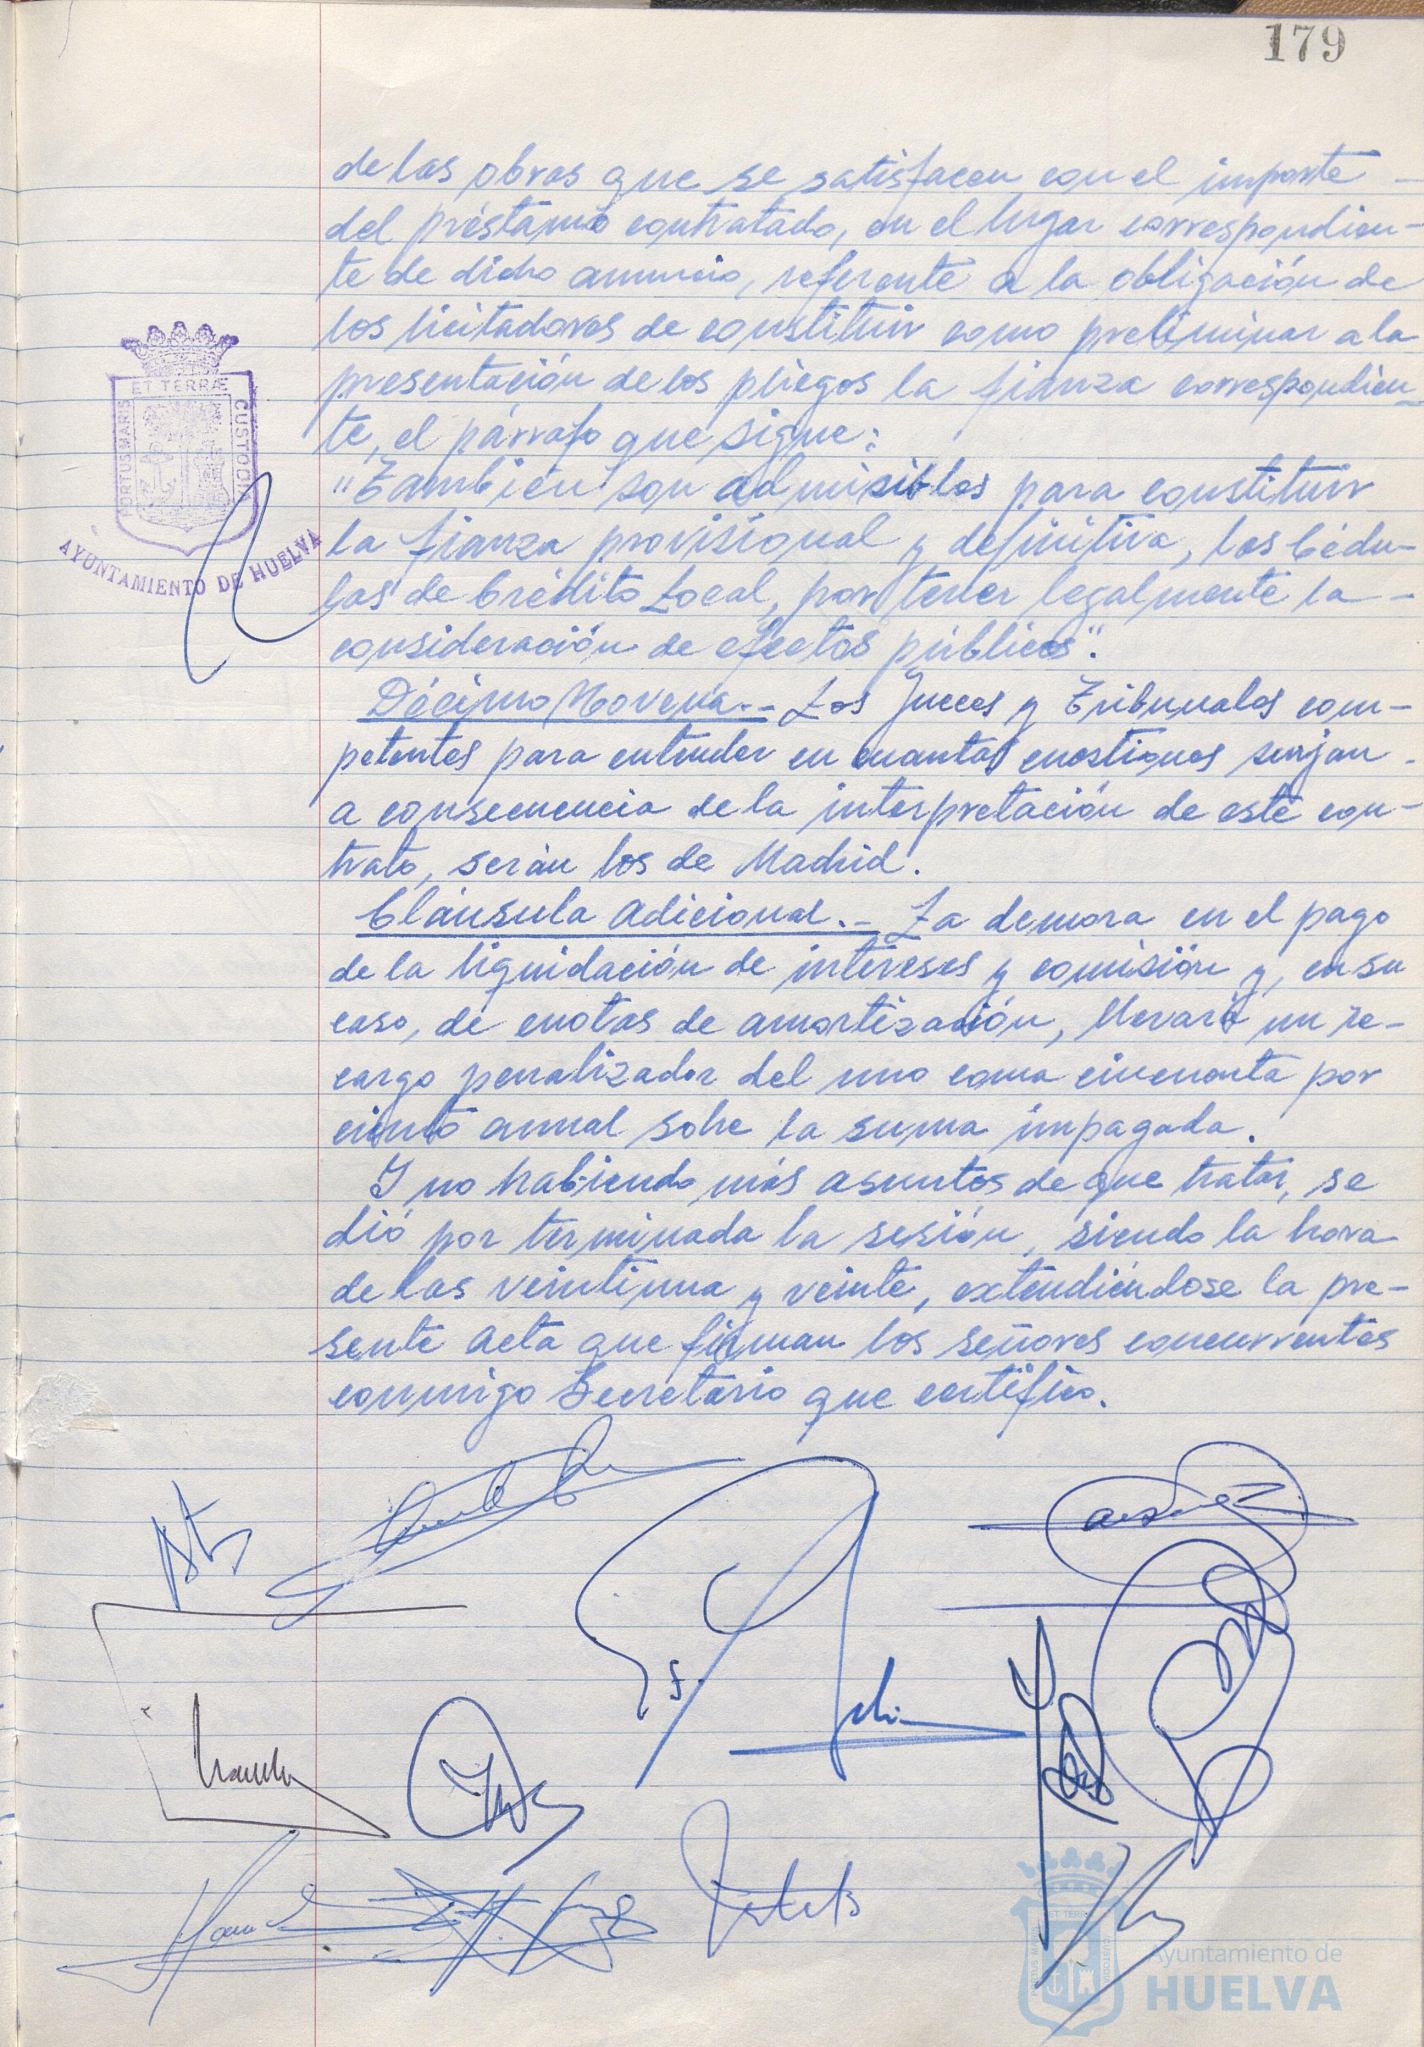 179
de las obras que se satisfacen con el importe -
del préstamo contratado, en el lugar correspondien-
te de dicho anuncio, referente a la obligación de
los licitadores de constituir como preliminar a la
presentación de los pliegos la fianza correspondien-
te, el párrafo que sigue:
"También son admisibles para constituir
la fianza provisional y definitiva, las Cédu-
las de Crédito Local, por tener legalmente la -
consideración de efectos públicos".
Décimo Novena.- Los Jueces y Tribunales com-
petentes para entender en cuantas cuestiones surjan -
a consecuencia de la interpretación de este con-
trato, serán los de Madrid.
Cláusula adicional.- La demora en el pago
de la liquidación de intereses y comisión y, en su
caso, de cuotas de amortización, llevará un re-
cargo penalizador del uno coma cincuenta por
ciento anual sobre la suma impagada.
Y no habiendo más asuntos de que tratar, se
dió por terminada la sesión, siendo la hora
de las veintiuna y veinte, extendiéndose la pre-
sente acta que firman los señores concurrentes
conmigo Secretario que certifico.
ET TERRÆ
PORTUS MARIS
CUSTODIA
AYUNTAMIENTO DE HUELVA
Ayuntamiento de
HUELVA